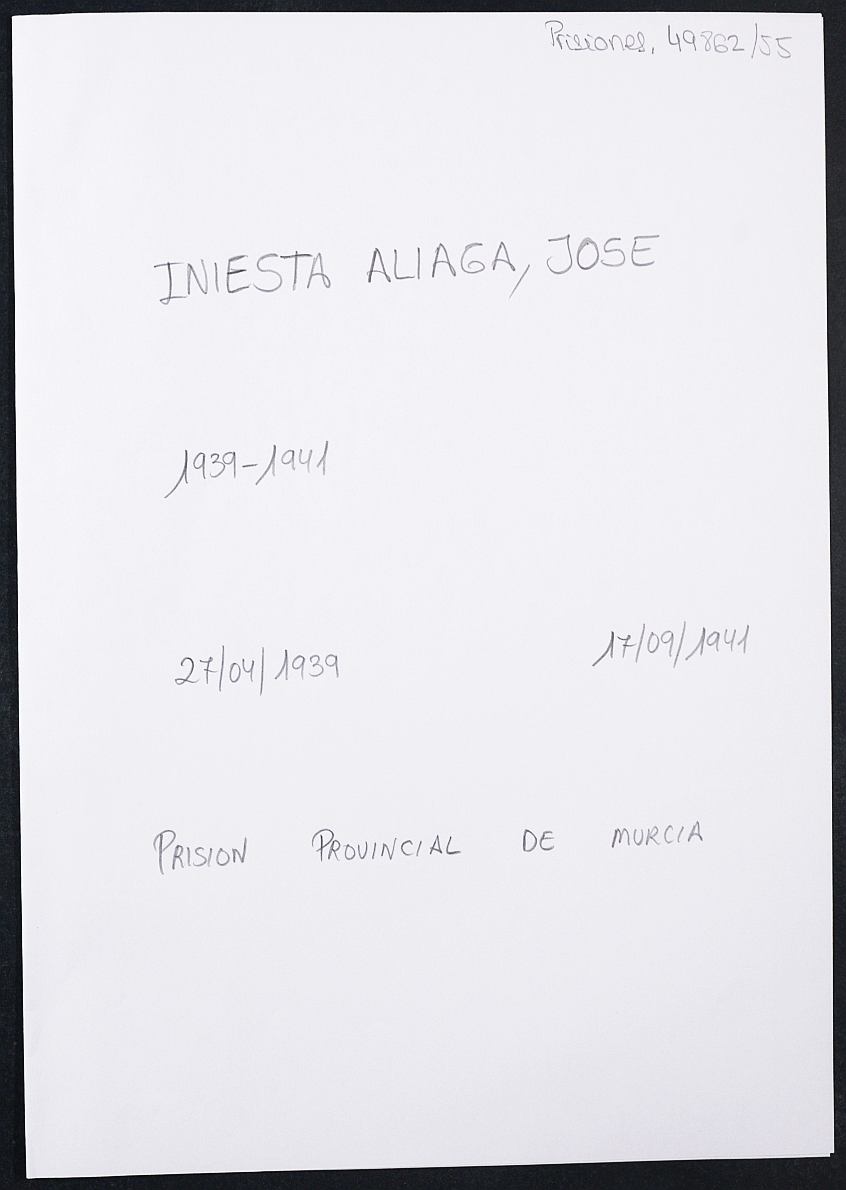 Prisiones, 49862/55
INIESTA ALIAGA, JOSE
1939-1941
27/04/1939 17/09/1941
PRISION PROVINCIAL DE MURCIA